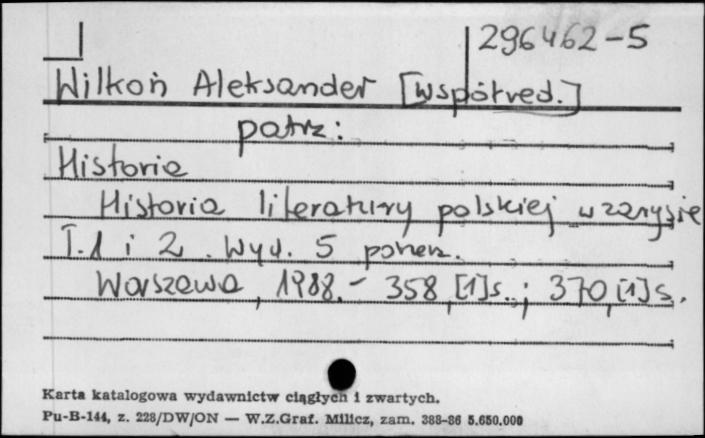 296462-5
Wilkoń Aleksander [współred.]
patrz:
Historia
Historia literatury polskiej w zarysie
T. 1 i 2. Wyd. 5 poherz.
Warszawa, 1988. - 358, [1] s. ; 370, [1] s.
Karta katalogowa wydawnictw ciągłych i zwartych.
Pu-B-144, z. 228/DW/ON — W.Z.Graf. Milicz, zam. 388-86 5.650.000